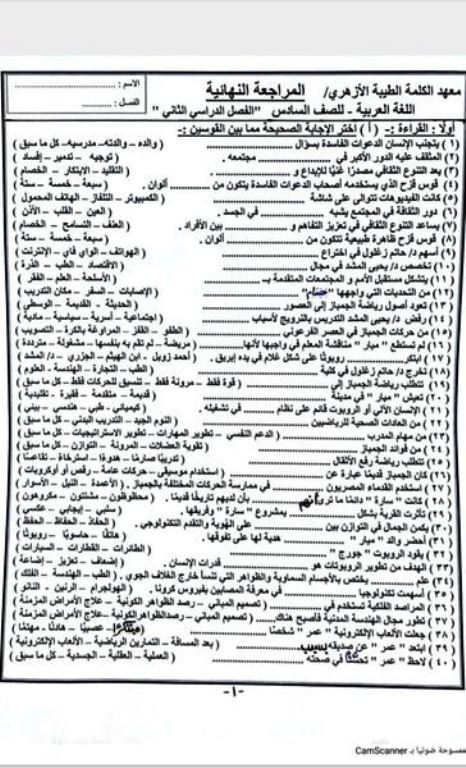 معهد الكلمة الطيبة الأزهري/ المراجعة النهائية
الاسم : ..............................
اللغة العربية - للصف السادس "الفصل الدراسي الثاني "
الفصل : ..................
أولًا : القراءة :- ( أ ) اختر الإجابة الصحيحة مما بين القوسين :-
١ ) يتجنب الإنسان الدعوات الفاسدة بسؤال ............ ( والده – والدته– مدرسيه– كل ما سبق )
٢ ) المثقف عليه الدور الأكبر في ............ مجتمعه . ( توجيه – تدمير – إفساد )
٣ ) يعد التنوع الثقافي مصدرًا غنيًا للإبداع و ............ ( التقليد – الابتكار – الخصام )
٤ ) قوس قزح الذي يستخدمه أصحاب الدعوات الفاسدة يتكون من ............ ألوان . ( سبعة – خمسة – ستة )
٥ ) كانت الفيديوهات تتوالى على شاشة ............ ( الكمبيوتر – التلفاز – الهاتف المحمول )
٦ ) دور الثقافة في المجتمع يشبه ............ في الجسد . ( العين – القلب – الأذن )
٧ ) يساعد التنوع الثقافي في تعزيز التفاهم و ............ بين الأفراد . ( العنف – التسامح – الخصام )
٨ ) قوس قزح ظاهرة طبيعية تتكون من ............ ألوان . ( سبعة – خمسة – ستة )
٩ ) أسهم د/ حاتم زغلول في اختراع ............ ( الهواتف – الواي فاي – الإنترنت )
١٠ ) تخصص د/ يحيى المشد في مجال ............ ( الاقتصاد – الطب – الذرة )
١١ ) يتشكل مستقبل الأمم و المجتمعات المتقدمة بـ ............ ( الأسلحة – العلم – الفقر )
١٢ ) من التحديات التي واجهها " " ............ ( الإصابات – السفر – مكان التدريب )
١٣ ) تعود أصول رياضة الجمباز إلى العصور ............ ( الحديثة – القديمة – الوسطى )
١٤ ) رفض د/ يحيى المشد التدريس بالنرويج لأسباب ............ ( اجتماعية – أسرية – سياسية – مادية )
١٥ ) من حركات الجمباز في العصر الفرعوني ............ ( الطفو – القفز – المراوغة بالكرة – التصويب )
١٦ ) لم تستطع " ميار " مناقشة المعلم في واجبها لأنها ............ ( مريضة – لم تقم به بنفسها – مشغولة – مترددة )
١٧ ) ابتكر ............ روبوتًا على شكل غلام في يده إبريق . ( أحمد زويل - ابن الهيثم – الجزري – د/ المشد )
١٨ ) تخرج د/ حاتم زغلول في كلية ............ ( الطب – التجارة – الهندسة – العلوم )
١٩ ) تتطلب رياضة الجمباز إلى ............ ( قوة فقط – مرونة فقط – تنسيق للحركات فقط – كل ما سبق )
٢٠ ) تعيش " ميار " في مدينة ............ ( قديمة – متقدمة – فقيرة – تقليدية )
٢١ ) الإنسان الآلي أو الروبوت قائم على نظام ............ في تشغيله . ( كيميائي - طبي – هندسي – بيئي )
٢٢ ) من العادات الصحية للرياضيين ............ ( النوم الجيد – التدريب البدني – كل ما سبق )
٢٣ ) من مهام المدرب ............ ( الدعم النفسي – تطوير المهارات – تطوير الاستراتيجيات – كل ما سبق )
٢٤ ) من فوائد الجمباز ............ ( تقوية العضلات – المرونة – التوازن – كل ما سبق )
٢٥ ) تتطلب رياضة رفع الأثقال ............ ( تدريبًا صارمًا – هدوءًا – استرخاءً – تقاعسًا )
٢٦ ) كان الجمباز قديمًا عبارة عن ............ ( استخدام موسيقى – حركات عامة – رقص أو أوكروبات )
٢٧ ) استخدم القدماء المصريون ............ في ممارسة الحركات المختلفة بالجمباز . ( الأعمدة – النيل – الأسوار )
٢٨ ) كانت " سارة " دائمًا ما ترى أنهم ............ بأن لديهم تاريخًا قديمًا . ( محظوظون – مشتتون – مكروهون )
٢٩ ) تأثرت القرية بشكل ............ بمشروع " سارة " وفريقها . ( سلبي – إيجابي – عكسي )
٣٠ ) يكمن الجمال في التوازن بين ............ على الهوية والتقدم التكنولوجي . ( الحفاظ )
٣١ ) أحضر والد " ميار " ............ هدية لها على تفوقها . ( هاتفًا – حاسوبًا – روبوتًا )
٣٢ ) يقود الروبوت " جورج " ............ ( الطائرات – القطارات – السيارات )
٣٣ ) الهدف من تطوير الروبوتات هو ............ قدرات الإنسان . ( إضعاف – تعزيز – إضاعة )
٣٤ ) علم ............ يختص بالأجسام السماوية والظواهر التي تنشأ خارج الغلاف الجوي . ( الطب – الهندسة – الفلك )
٣٥ ) أسهمت تكنولوجيا ............ في معرفة المصابين بفيروس كورونا . ( الهولجرام – الرنين – النانو )
٣٦ ) المراصد الفلكية تستخدم في ............ ( تصميم المباني – رصد الظواهر الكونية – علاج الأمراض المزمنة )
٣٧ ) تطور مجال الهندسة المدنية فأصبح هناك ............ ( تصميم المباني – رصد الظواهر الكونية – علاج الأمراض المزمنة )
٣٨ ) جعلت الألعاب الإلكترونية " عمر " شخصًا ............ ( عصبيًا – هادئًا – مهتمًا )
٣٩ ) ابتعد " عمر " عن صديقه بسبب ............ ( بعد المسافة – التمارين الرياضية – الألعاب الإلكترونية )
٤٠ ) لاحظ " عمر " تحسنًا في صحته ............ ( العملية – العقلية – الجسدية – كل ما سبق )
-١-
الممسوحة ضوئيا بـ CamScanner